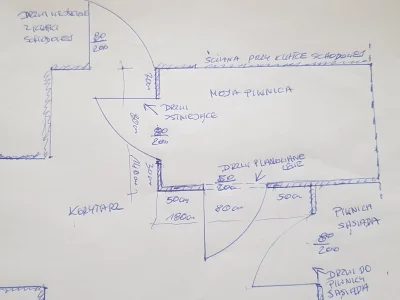 DRZWI WEJŚCIOWE
Z KLATKI
SCHODOWEJ
80
200
ŚCIANA PRZY KLATCE SCHODOWEJ
MOJA PIWNICA
70cm
DRZWI
ISTNIEJĄCE
80cm
80
200
DRZWI PLANOWANE
LEWE
80
200
30cm
140cm
KORYTARZ
50cm
80cm
50cm
180cm
PIWNICA
SĄSIADA
80
200
DRZWI DO
PIWNICY
SĄSIADA